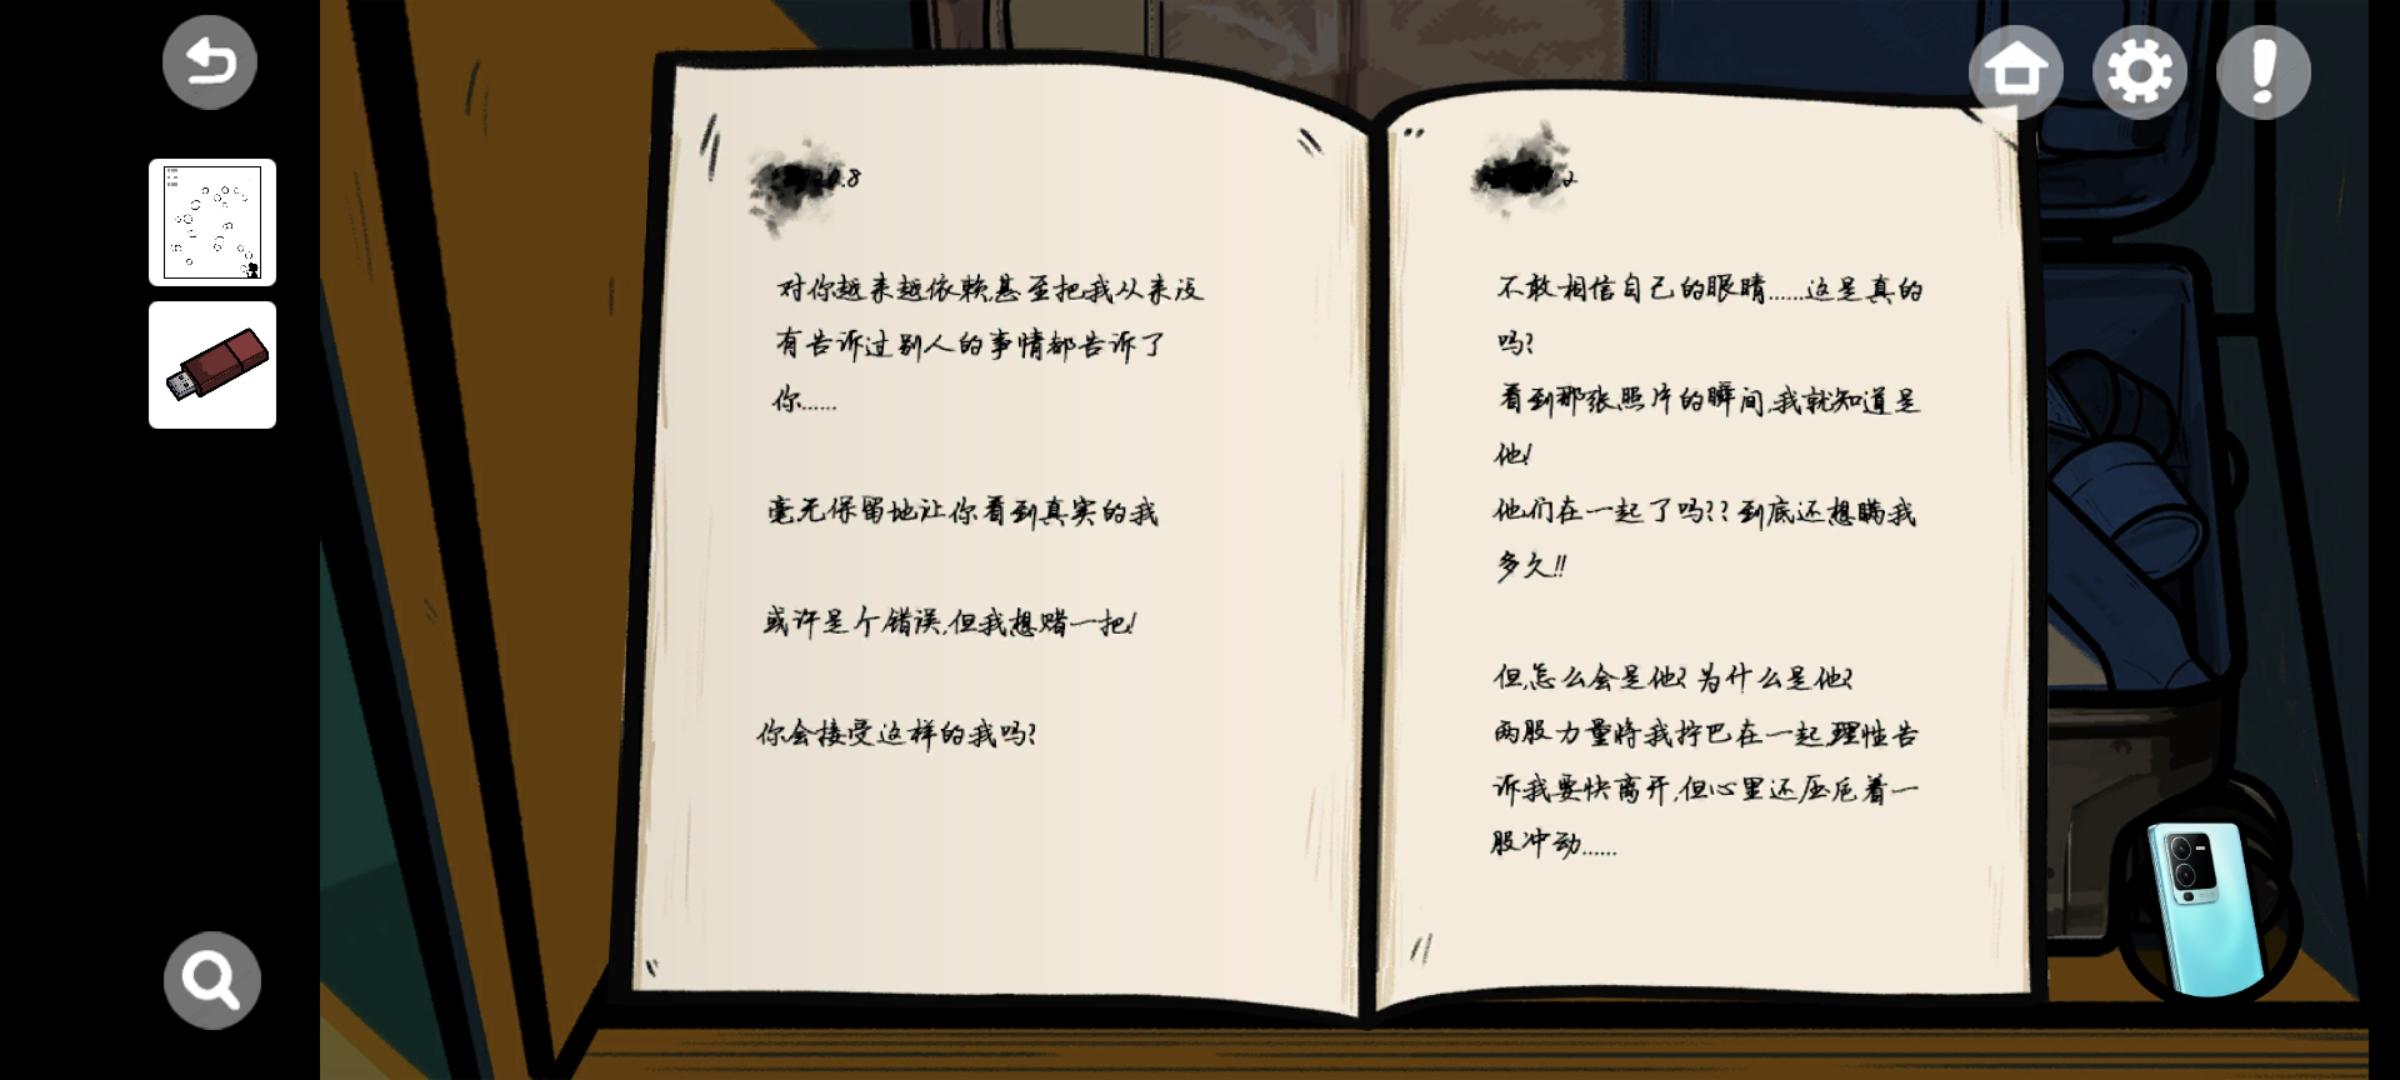 .8
对你越来越依赖,甚至把我从来没
有告诉过别人的事情都告诉了
你......
毫无保留地让你看到真实的我
或许是个错误,但我想赌一把!
你会接受这样的我吗?
.2
不敢相信自己的眼睛......这是真的
吗?
看到那张照片的瞬间,我就知道是
他!
他们在一起了吗??到底还想瞒我
多久!!
但,怎么会是他?为什么是他?
两股力量将我拧巴在一起,理性告
诉我要快离开,但心里还压抑着一
股冲动......